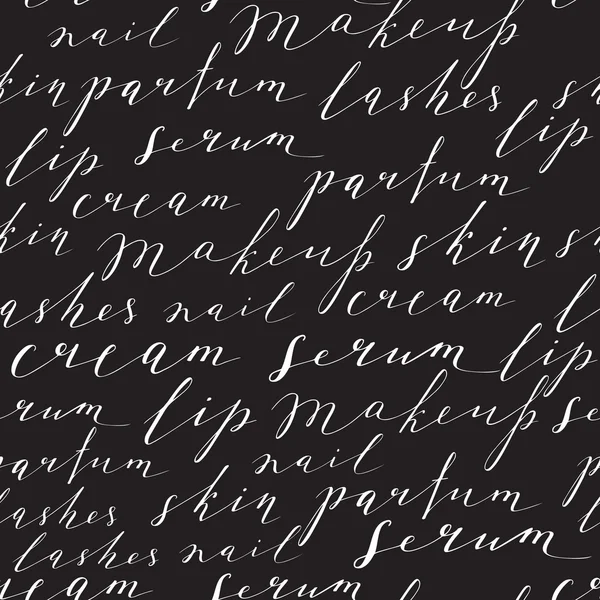 nail Makeup
kin parfum lashes sk
lip serum lip
cream parfum
kin Makeup skin sk
ashes nail cream l
cream serum lip
rum lip Makeup se
arfum nail
lashes skin parfum
lashes nail serum
eam serum